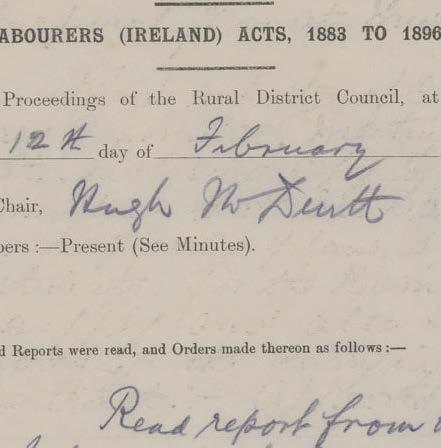 ABOURERS (IRELAND) ACTS, 1883 TO 1896
Proceedings of the Rural District Council, at
12th day of February
Chair, Hugh
bers :—Present (See Minutes).
d Reports were read, and Orders made thereon as follows :—
Read report from